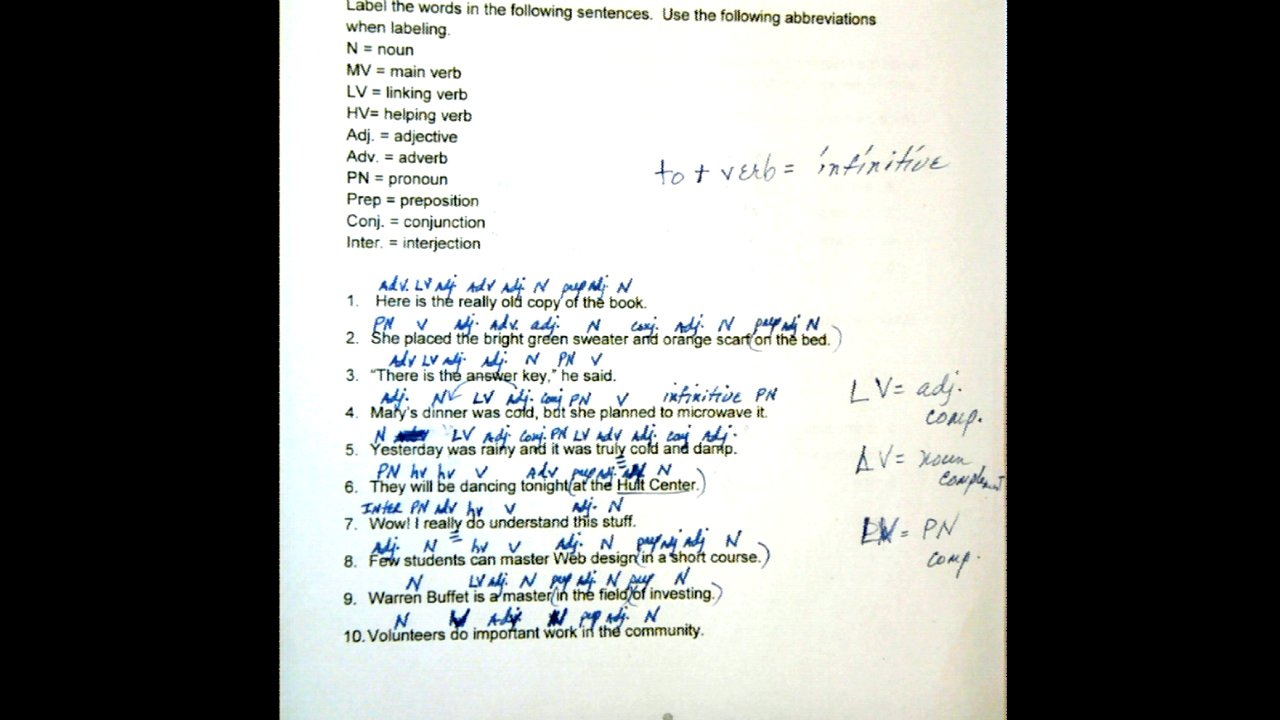 Label the words in the following sentences. Use the following abbreviations
when labeling.
N = noun
MV = main verb
LV = linking verb
HV= helping verb
Adj. = adjective
Adv. = adverb
PN = pronoun
Prep = preposition
Conj. = conjunction
Inter. = interjection
to + verb = infinitive
Adv. LV Adj Adv Adj N prep adj N
1. Here is the really old copy of the book.
PN V Adj. Adv. adj. N conj. Adj. N prep adj N
2. She placed the bright green sweater and orange scarf (on the bed.)
Adv LV Adj. Adj. N PN V
3. "There is the answer key," he said.
Adj. N LV Adj. conj PN V infinitive PN
4. Mary's dinner was cold, but she planned to microwave it.
N LV Adj conj. PN LV Adv Adj. conj Adj.
5. Yesterday was rainy and it was truly cold and damp.
PN hv hv V Adv prep adj. N
6. They will be dancing tonight (at the Hult Center.)
Inter PN adv hv V Adj. N
7. Wow! I really do understand this stuff.
Adj. N hv V Adj. N prep adj adj N
8. Few students can master Web design (in a short course.)
N LV adj. N prep adj. N prep N
9. Warren Buffet is a master (in the field) (of investing.)
N V Adj N prep adj. N
10. Volunteers do important work in the community.
LV = adj.
comp.
LV = noun
complement
LV = PN
comp.